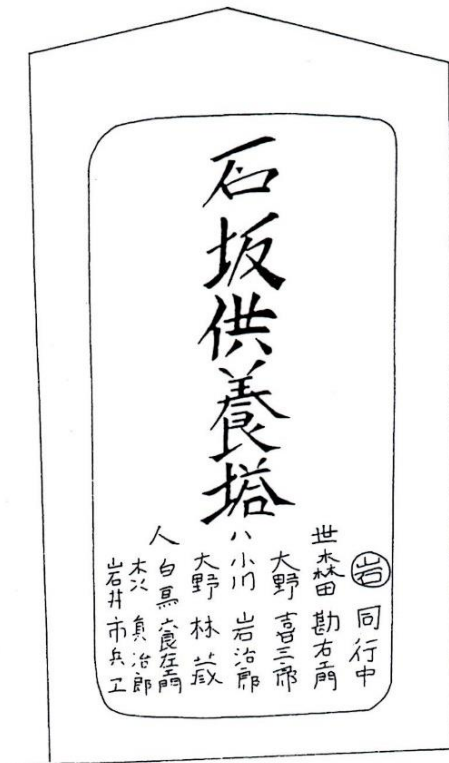 石坂供養塔
岩 同行中
世 森田 勘右エ門
大野 喜三郎
八 小川 岩治郎
大野 林蔵
人 白 左エ門
木次 眞治郎
岩井 市兵エ